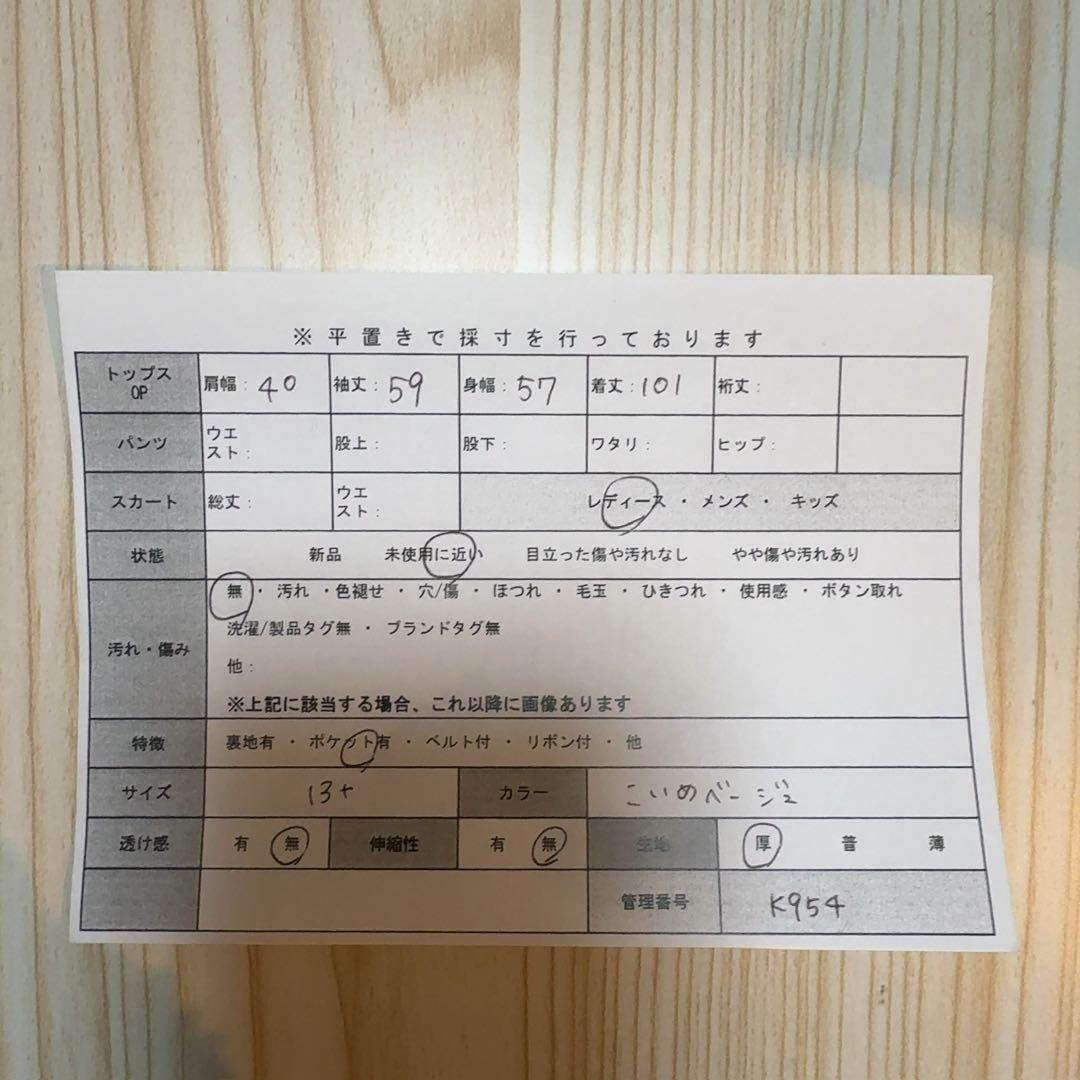 ※平置きで採寸を行っております
トップス OP 肩幅：40 袖丈：59 身幅：57 着丈：101 裄丈：
パンツ ウエスト： 股上： 股下： ワタリ： ヒップ：
スカート 総丈： ウエスト： レディース ・ メンズ ・ キッズ
状態 新品 未使用に近い 目立った傷や汚れなし やや傷や汚れあり
汚れ・傷み 無 ・ 汚れ ・色褪せ ・ 穴/傷 ・ ほつれ ・ 毛玉 ・ ひきつれ ・ 使用感 ・ ボタン取れ
洗濯/製品タグ無 ・ ブランドタグ無
他：
※上記に該当する場合、これ以降に画像あります
特徴 裏地有 ・ ポケット有 ・ ベルト付 ・ リボン付 ・ 他
サイズ 13+ カラー こいめベージュ
透け感 有 無 伸縮性 有 無 生地 厚 普 薄
管理番号 K954